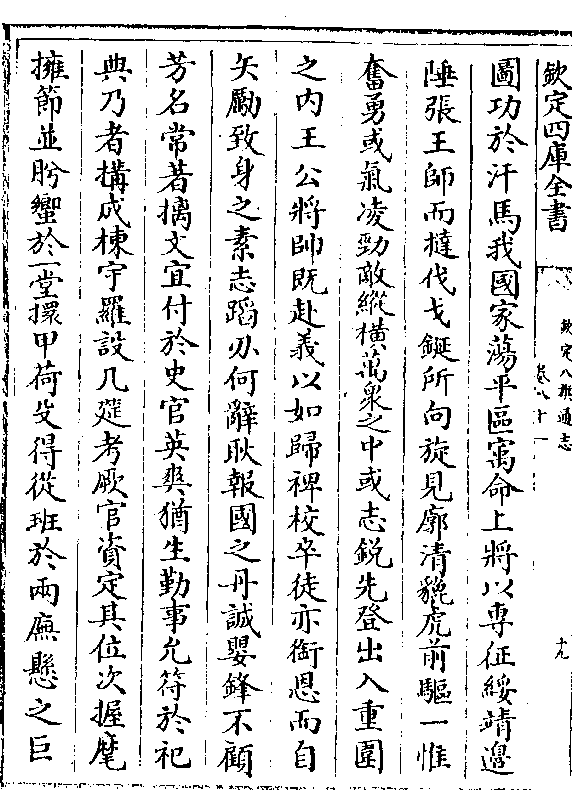 欽定四庫全書
欽定八旗通志
卷八十一
十九
圖功於汗馬我國家蕩平區寓命上將以専征綏靖邊
陲張王師而撻伐戈鋋所向旋見廓清貔虎前驅一惟
奮勇或氣凌勁敵縱横萬衆之中或志鋭先登出入重圍
之内王公將帥既赴義以如歸裨校卒徒亦銜恩而自
矢勵致身之素志蹈刃何辭耿報國之丹誠嬰鋒不顧
芳名常著摛文宜付於史官英爽猶生勤事允符於祀
典乃者構成棟宇羅設几筵考厥官資定其位次握麾
擁節並肹蠁於一堂擐甲荷殳得從班於兩廡懸之巨